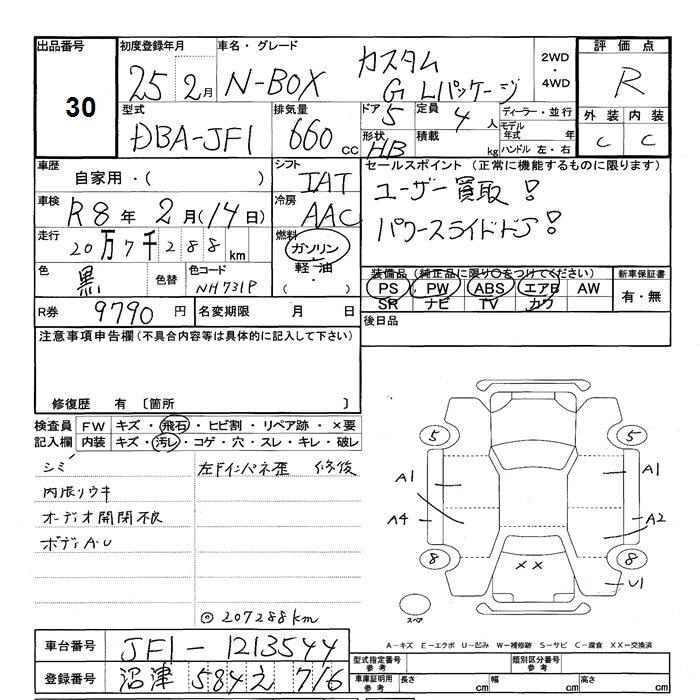 出品番号
30
初度登録年月
25 2月
車名・グレード
N-BOX カスタム
G Lパッケージ
2WD
・
4WD
評価点
R
外装 内装
C C
型式
DBA-JF1
排気量
660 cc
ドア 5
定員 4 人
形状 HB
積載 kg
ディーラー・並行
モデル年式 年
ハンドル 左・右
車歴
自家用・( )
シフト
IAT
車検
R8年 2月(14日)
冷房
AAC
走行
20万7千288 km
燃料
ガソリン
軽・油
・
( )
色
黒
色替
色コード
NH731P
セールスポイント(正常に機能するものに限ります)
ユーザー買取!
パワースライドドア!
装備品(純正品に限り○をつけてください)
PS PW ABS エアB AW
SR ナビ TV カワ
新車保証書
有・無
R券 9790 円
名変期限 月 日
後日品
注意事項申告欄(不具合内容等は具体的に記入して下さい)
修復歴 有 〔箇所 〕
検査員 記入欄
FW キズ・飛石・ヒビ割・リペア跡・×要
内装 キズ・汚レ・コゲ・穴・スレ・キレ・破レ
シミ
内張リウキ
オーディオ開閉不良
ボディA・U
左Fインパネ歪 修復
◎207288km
5 5
A1 A1
A4 A2
8 8
×× U1
スペア
A-キズ E-エクボ U-凹み W-補修跡 S-サビ C-腐食 XX-交換済
車台番号 JF1-1213544
登録番号 沼津 584 え 716
型式指定番号 参考
類別区分番号 参考
車庫証明用 参考
長さ cm
幅 cm
高さ cm